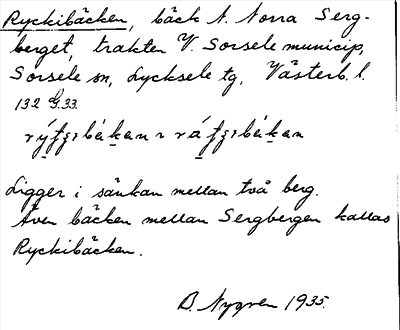 Ryckibäcken, bäck N. Norra Serg-
berget, trakten V. Sorsele municip,
Sorsele sn, Lycksele tg, Västerb. l.
132 G.33.
Ligger i sänkan mellan två berg.
Även bäcken mellan Sergbergen kallas
Ryckibäcken.
B. Nygren 1935.